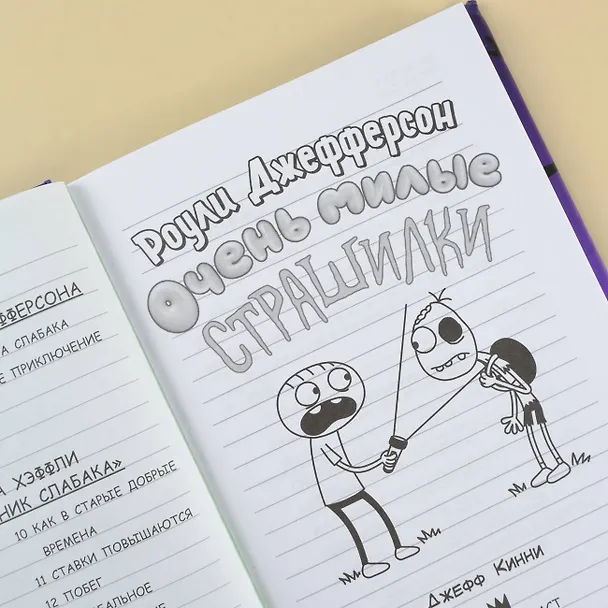 ФФЕРСОНА
А СЛАБАКА
Е ПРИКЛЮЧЕНИЕ
А ХЭФФЛИ
НИК СЛАБАКА»
10 КАК В СТАРЫЕ ДОБРЫЕ
ВРЕМЕНА
11 СТАВКИ ПОВЫШАЮТСЯ
12 ПОБЕГ
ЕАЛЬНОЕ
Роули Джефферсон
Очень милые
СТРАШИЛКИ
ДЖЕФФ КИННИ